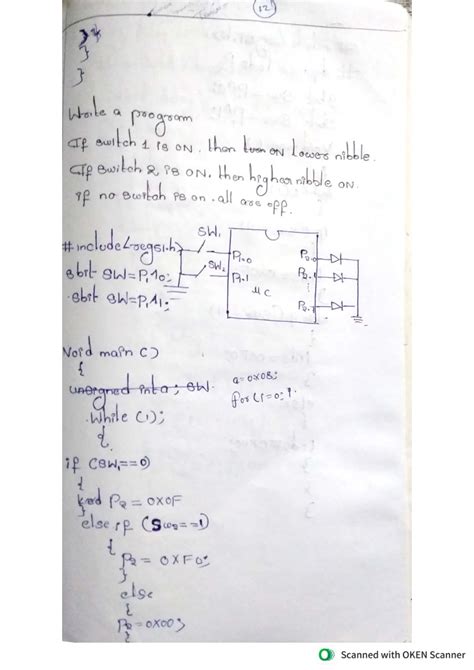 12
}
}
}
Write a program
If switch 1 is ON. then turn ON Lower nibble.
If switch 2 is ON, then higher nibble ON
if no switch is on. all are off.
SW1
#include<regs1.h>
P1.0
P2.0
sbit SW=P1^0;
SW2
P1.1
P2.1
sbit SW=P1^1;
μC
P2.7
Void main ()
{
a=0x08;
unsigned int a; SW.
for (i=0; i
While (1);
{
if (SW1==0)
{
P2 = 0X0F
else if (SW2==1)
{
P2 = 0XF0;
}
else
{
P2=0X00;
Scanned with OKEN Scanner